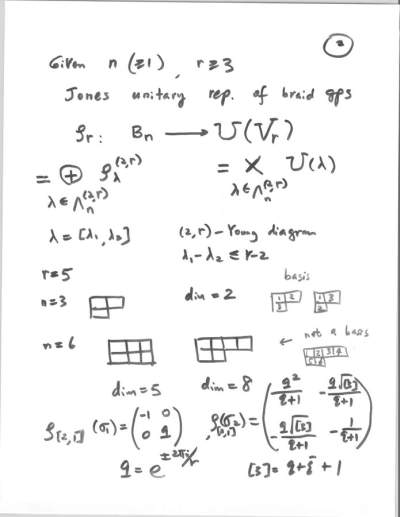 2
Given n (≥1), r≥3
Jones unitary rep. of braid gps
ρr: Bn → U(Vr)
= ⊕ λ∈Λn^(2,r) ρλ^(2,r) = × λ∈Λn^(2,r) U(λ)
λ = [λ1, λ2] (2,r)-Young diagram
λ1-λ2 ≤ r-2
r=5 basis
n=3 dim = 2 1 2 3 1 3 2
n=6 ← not a basis
1 2 3 4
dim=5 dim = 8
ρ[2,1](σ1) = (-1 0 0 q), ρ[2,1](σ2) = (q²/q+1 -q√[3]/q+1 -q√[3]/q+1 -1/q+1)
q = e^±2πi/r [3] = q+q̄+1